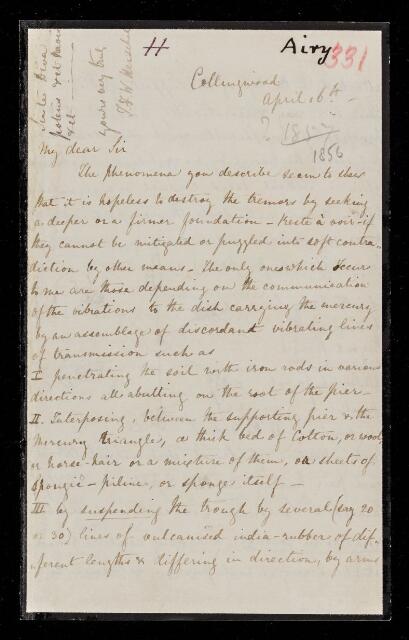 H
Airy
331
yours very truly
J F W Herschel
Collingwood
April 16th
? 1857 ?
1856
My dear Sir
The Phenomena you describe seem to shew
that it is hopeless to destroy the tremors by seeking
a deeper or a firmer foundation – Reste à voir if
they cannot be mitigated or puzzled into soft contra-
diction by other means – The only ones which occur
to me are those depending on the communication
of the vibrations to the dish carrying the mercury
by an assemblage of discordant vibrating lines
of transmission such as
I penetrating the soil with iron rods in various
directions all abutting on the root of the pier –
II. Interposing, between the supporting pier & the
mercury triangle, a thick bed of Cotton, or wool,
or horse-hair or a mixture of them, or a sheets of
Spongio-piline, or sponge itself –
III by suspending the trough by several (say 20
or 30) lines of vulcanised india-rubber of dif-
ferent lengths & differing in direction, by arms